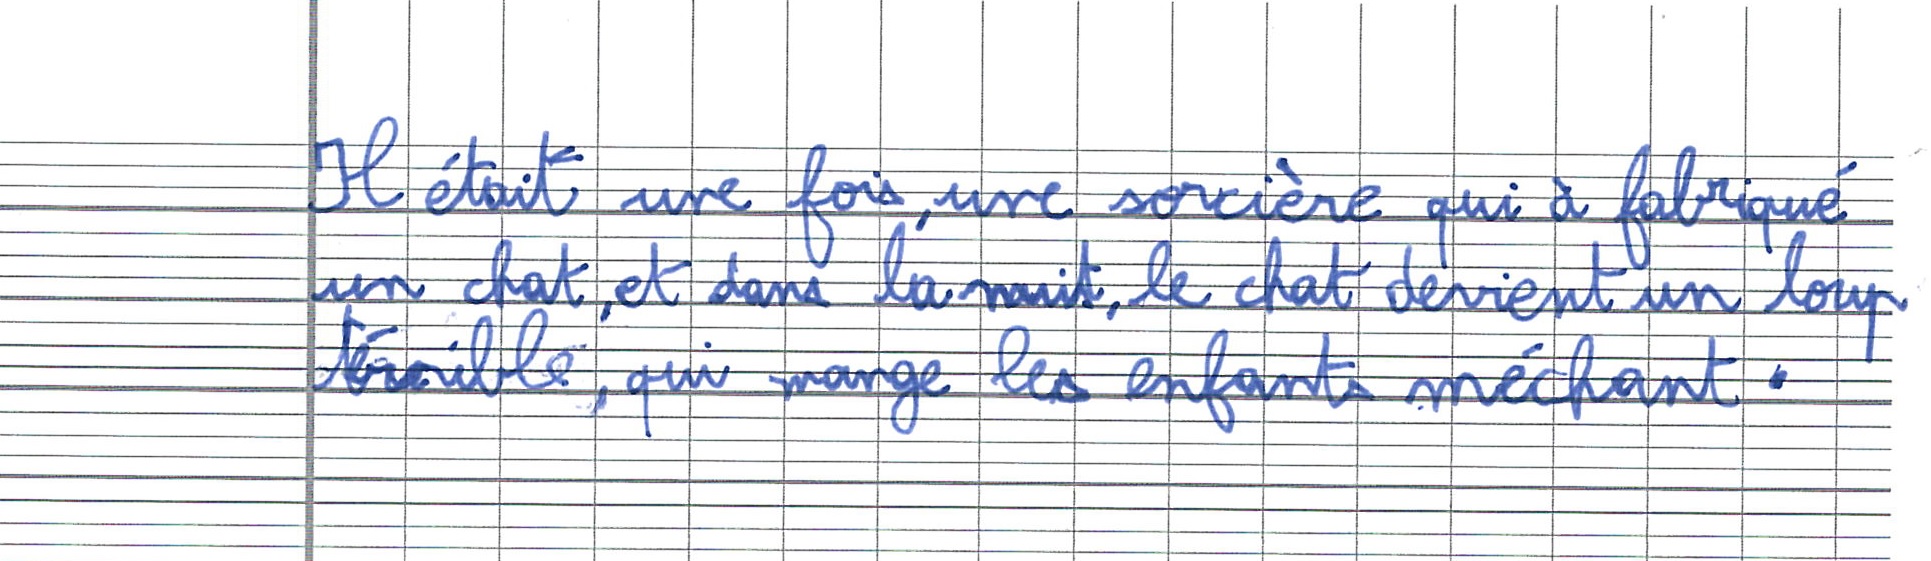 Il était une fois, une sorcière qui à fabriqué
un chat, et dans la nuit, le chat devient un loup
térrible, qui mange les enfants méchant.